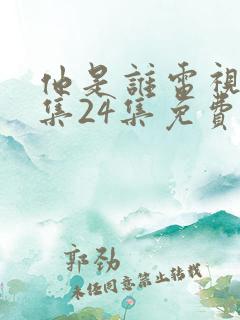 他是誰電視
集24集免費
郭勁
未经同意禁止转载